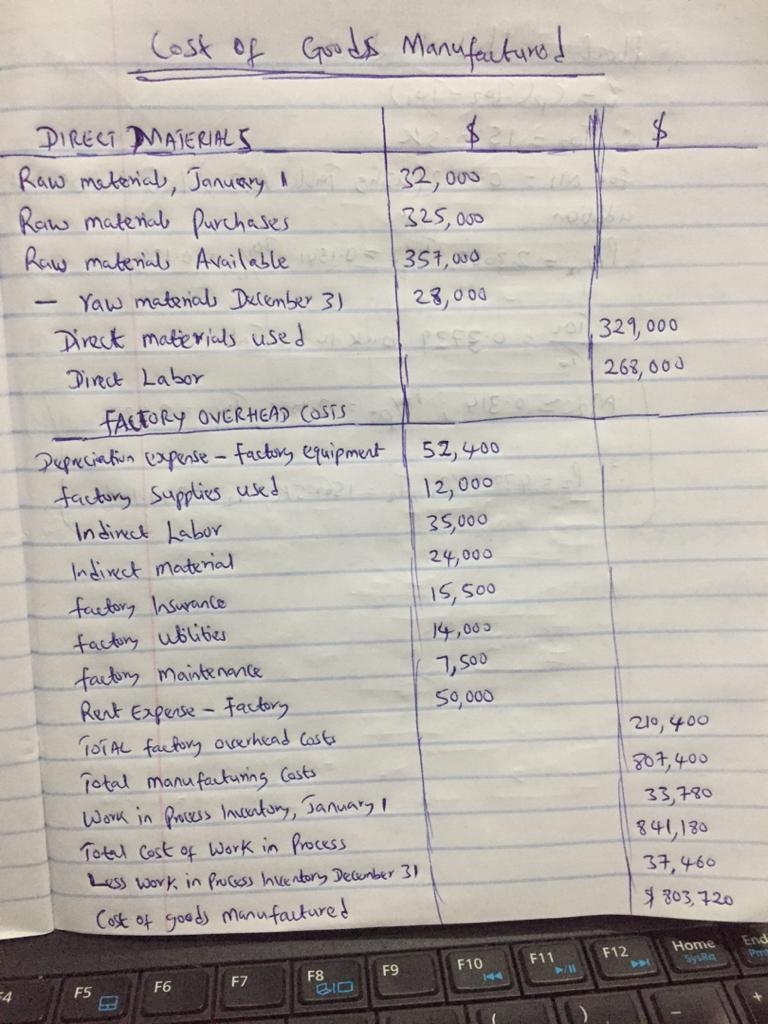 Cost of Goods Manufactured
DIRECT MATERIALS $ $
Raw material, January 1 32,000
Raw material Purchases 325,000
Raw material Available 357,000
- raw materials December 31 28,000
Direct materials used 329,000
Direct Labor 268,000
FACTORY OVERHEAD COSTS
Depreciation expense - factory equipment 52,400
factory Supplies used 12,000
Indirect Labor 35,000
Indirect material 24,000
factory Insurance 15,500
factory utilities 14,000
factory maintenance 7,500
Rent Expense - Factory 50,000
TOTAL factory overhead costs 210,400
Total manufacturing costs 807,400
Work in Process Inventory, January 1 33,780
Total cost of work in Process 841,180
Less work in Process Inventory December 31 37,460
Cost of goods manufactured $ 803,720
F4 F5 F6 F7 F8 F9 F10 F11 F12 Home End
SysRq
( ) - +